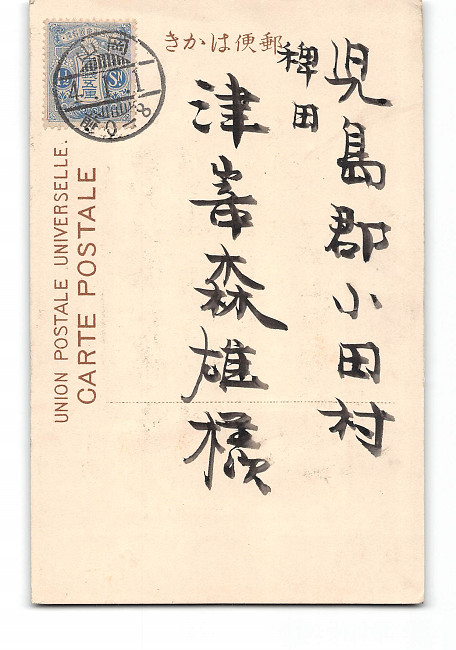 きかは便郵
児島郡小田村
稗田
津峯森雄様
UNION POSTALE UNIVERSELLE.
CARTE POSTALE